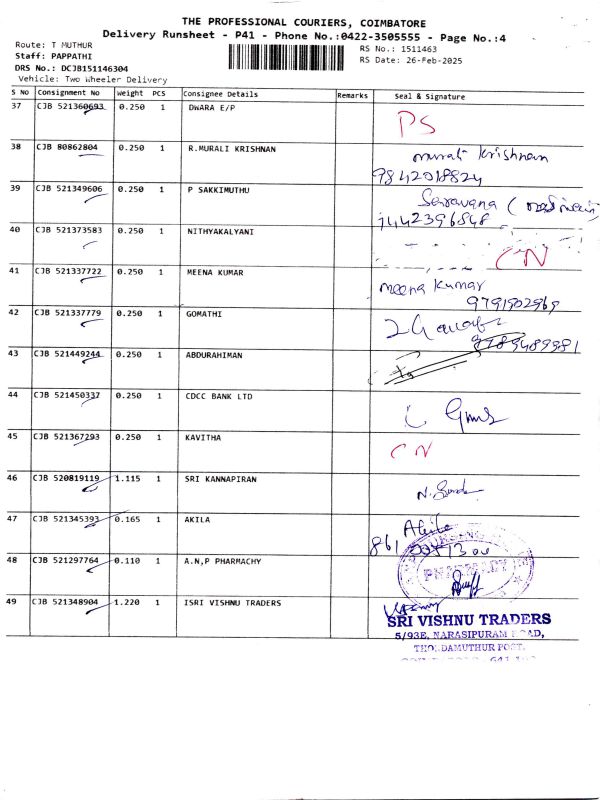 THE PROFESSIONAL COURIERS, COIMBATORE
Delivery Runsheet - P41 - Phone No.:0422-3505555 - Page No.:4
Route: T MUTHUR
RS No.: 1511463
Staff: PAPPATHI
RS Date: 26-Feb-2025
DRS No.: DCJB151146304
Vehicle: Two Wheeler Delivery
S No Consignment No Weight PCS Consignee Details Remarks Seal & Signature
37 CJB 521360693 0.250 1 DWARA E/P PS
38 CJB 80862804 0.250 1 R.MURALI KRISHNAN murali krishnan
9842018824
39 CJB 521349606 0.250 1 P SAKKIMUTHU Saravana (
40 CJB 521373583 0.250 1 NITHYAKALYANI CN
41 CJB 521337722 0.250 1 MEENA KUMAR meena kumar
9791902969
42 CJB 521337779 0.250 1 GOMATHI
9789489981
43 CJB 521449244 0.250 1 ABDURAHIMAN
44 CJB 521450337 0.250 1 CDCC BANK LTD
45 CJB 521367293 0.250 1 KAVITHA CN
46 CJB 520819119 1.115 1 SRI KANNAPIRAN
47 CJB 521345393 0.165 1 AKILA Akila
48 CJB 521297764 0.110 1 A.N,P PHARMACHY PHARMACY
49 CJB 521348904 1.220 1 ISRI VISHNU TRADERS
SRI VISHNU TRADERS
5/93E, NARASIPURAM ROAD,
THONDAMUTHUR POST,